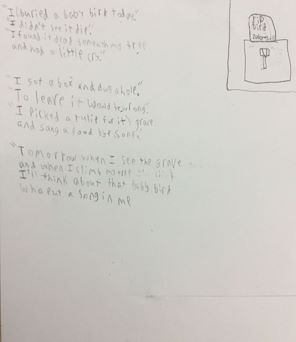 "I buried a baby bird today."
"I didn't see it die."
I found it dead beneath my tree
and had a little cry."
I got a box and dug a hole."
To leave it would be wrong.
I picked a tulip for its grave
and sang a good bye song.
"Tomorrow when I see the grave
and when I climb my tree
I'll think about that baby bird
who put a song in me
RIP
bird